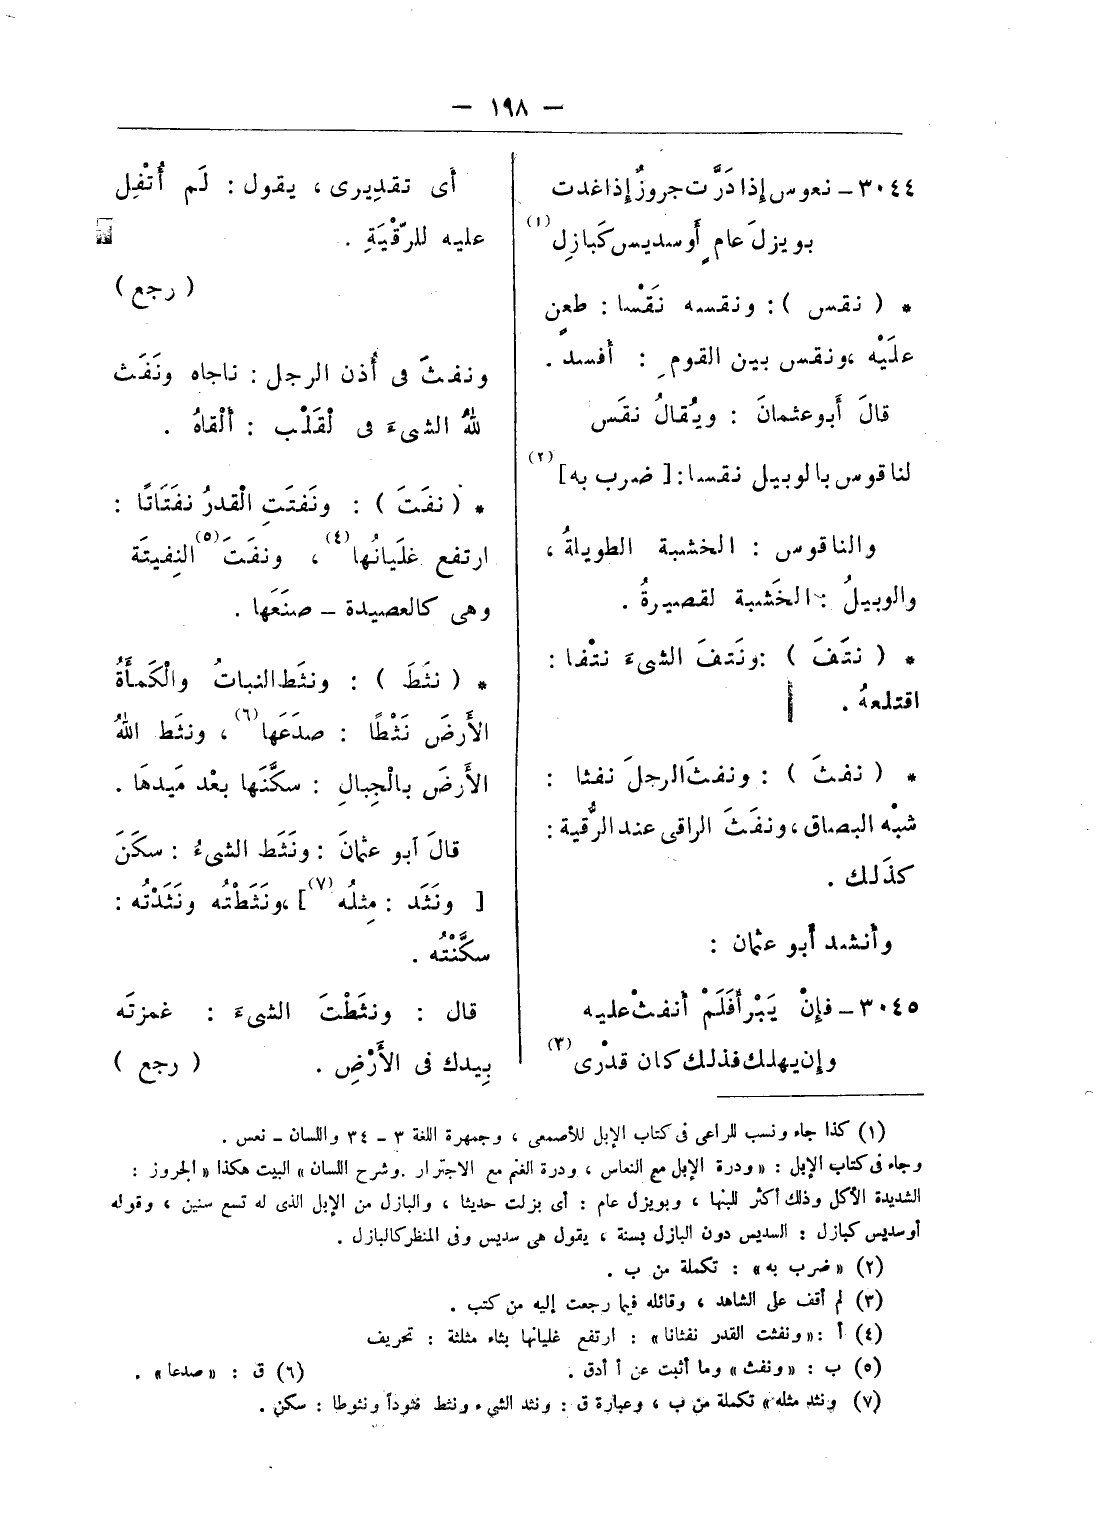 — ١٩٨ —
٣٠٤٤ – نعوس إذا دَرَّت جروزٌ إذا غدت
بويزلَ عام أو سديس كَبازِل (١)
* ( نقس ) : ونقسه نَقْسا : طعن
علَيْه ، ونقس بين القوم : أفسد .
قالَ أَبو عثمانَ : ويُقالُ نقَس
لناقوس بالوبيل نقسا : [ ضرب به ] (٢)
والناقوس : الخشبة الطويلةُ ،
والوبيلُ : الخَشبة لقصيرةُ .
* ( نتَفَ ) : ونَتفَ الشىءَ نتْفا :
اقتلعهُ .
* ( نفثَ ) : ونفثَ الرجلَ نفثا :
شبْه البصاق ، ونفَثَ الراقى عند الرُّقية :
كذَلك .
وأنشد أبو عثمان :
٣٠٤٥ – فإنْ يَبْرأ فَلَمْ أنفثْ عليه
وإن يهلك فذلك كان قدْرى (٣)
أى تقديرى ، يقول : لَم أُتْفِل
عليه للرّقْيَةِ .
( رجع )
ونفثَ فى أُذن الرجل : ناجاه ونَفَث
للهُ الشىءَ فى لْقَلْب : ألْقاهُ .
* ( نفَتَ ) : ونَفتَتِ الْقدرُ نفتَانًا :
ارتفع غلَيانُها (٤) ، ونفَتَ (٥) النِفيتَة
وهى كالعصيدة – صنَعَها .
* ( نثَطَ ) : ونثَط النباتُ والْكَمأَةُ
الأَرضَ نَثْطًا : صدَعَها (٦) ، ونثَط اللهُ
الأَرضَ بالْجِبالِ : سكَّنَها بعْد مَيدهَا .
قالَ أبو عثمانَ : ونَثَط الشىءُ : سكَنَ
[ ونَثَد : مِثلُه (٧) ] ، ونَثَطْتُه ونَثَدْتُه :
سكَّنْتُه .
قال : ونثَطْتَ الشىءَ : غمزتَه
بِيدك فى الأَرْضِ . ( رجع )
(١) كذا جاء ونسب للراعى فى كتاب الإبل للأصمعى ، وجمهرة اللغة ٣ – ٣٤ واللسان – نعس .
وجاء فى كتاب الإبل : « ودرة الإبل مع النعاس ، ودرة الغنم مع الاجترار . وشرح اللسان » البيت هكذا « الجروز :
الشديدة الأكل وذلك أكثر للبنها ، وبويزل عام : أى بزلت حديثا ، والبازل من الإبل الذى له تسع سنين ، وقوله
أو سديس كبازل : السديس دون البازل بسنة ، يقول هى سديس وفى المنظر كالبازل .
(٢) « ضرب به » : تكملة من ب .
(٣) لم أقف على الشاهد ، وقائله فيما رجعت إليه من كتب .
(٤) أ : « ونفثت القدر نفثانا » : ارتفع غليانها بثاء مثلثة : تحريف
(٥) ب : « ونفث » وما أثبت عن أ أدق . (٦) ق : « صدعا » .
(٧) ونثد مثله » تكملة من ب ، وعبارة ق : ونثد الشىء ونثط نثوداً ونثوطا : سكن .